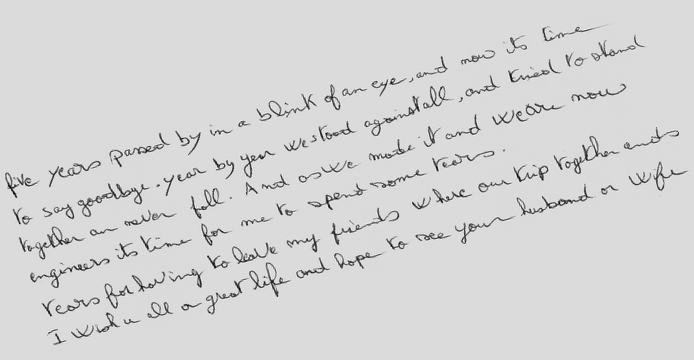 five years passed by in a blink of an eye, and now its time
to say goodbye. year by year we stood against all, and tried to stand
together an never fall. And as we made it and we are now
engineers its time for me to spend some tears.
tears for having to leave my friends where our trip together ends
I wish u all a great life and hope to see your husband or wife